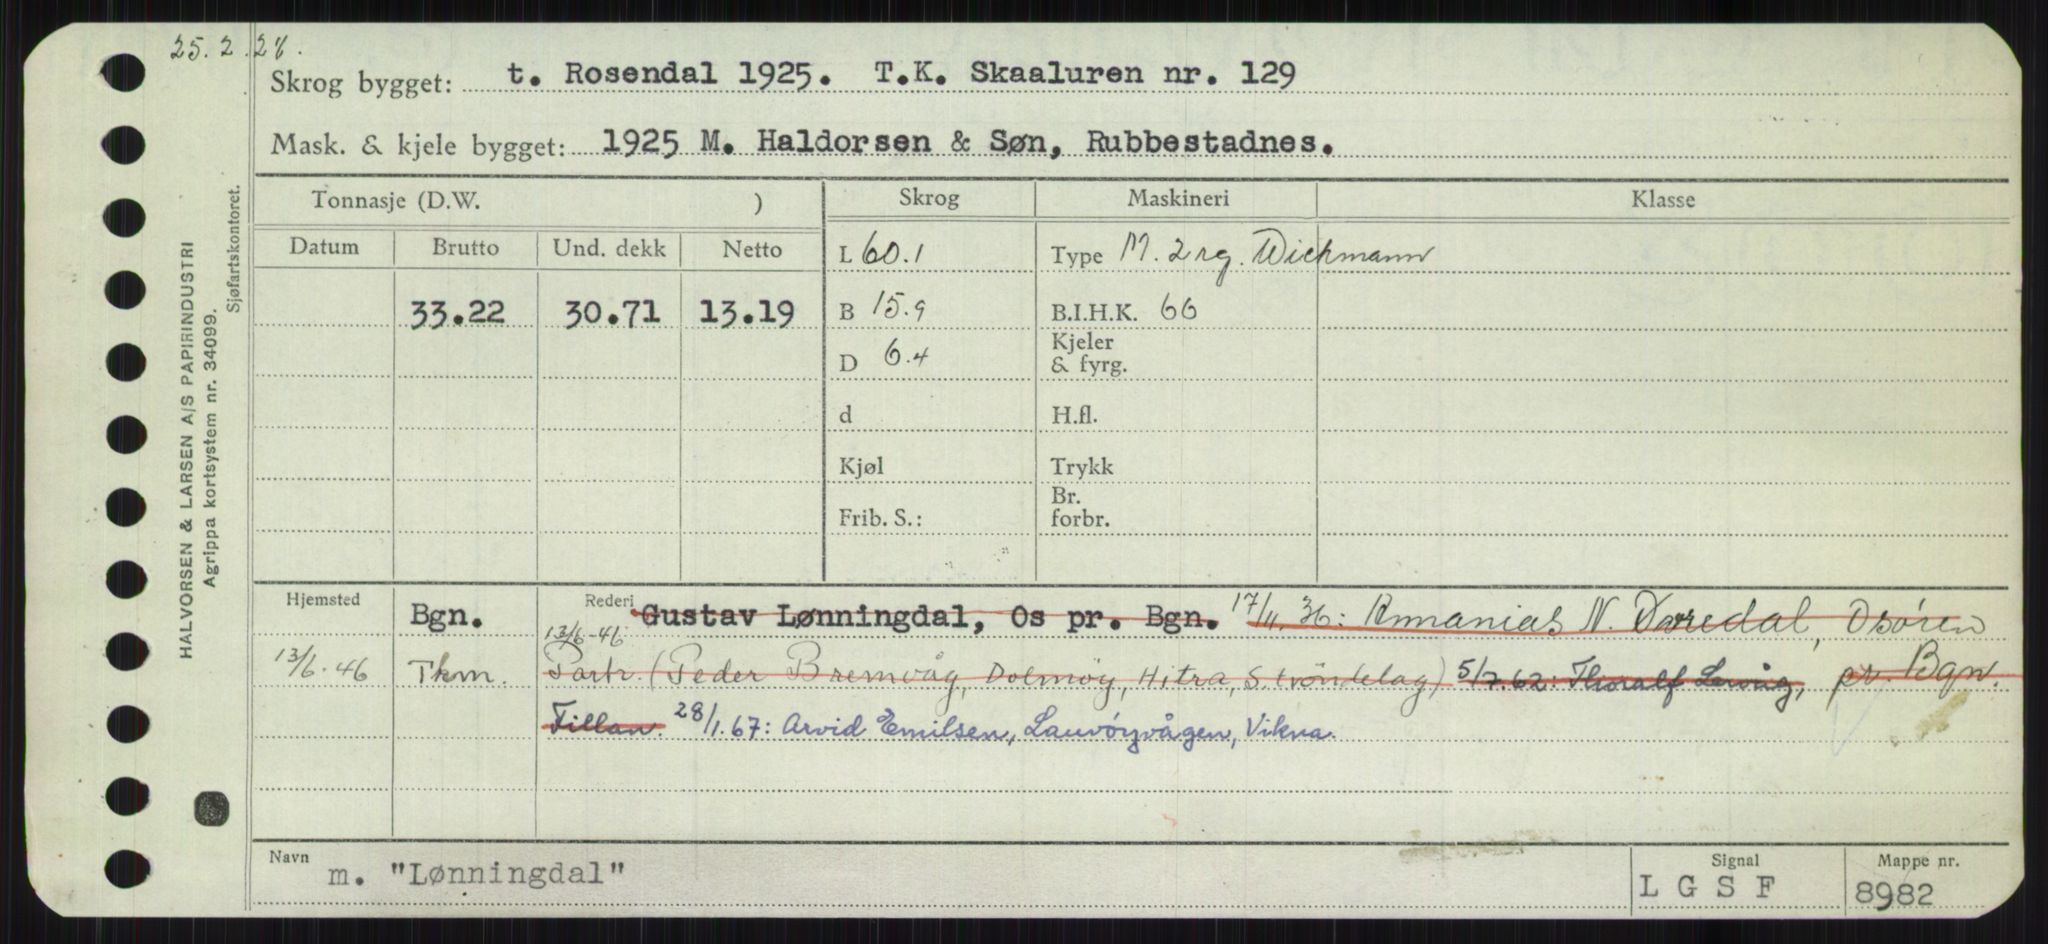 25.2.28.
Skrog bygget: t. Rosendal 1925. T.K. Skaaluren nr. 129
Mask. & kjele bygget: 1925 M. Haldorsen & Søn, Rubbestadnes.
Tonnasje (D.W. ) Skrog Maskineri Klasse
Datum Brutto Und. dekk Netto L 60.1 Type M. 2 rg. Wichmann
33.22 30.71 13.19 B 15.9 B.I.H.K. 66
D 6.4 Kjeler & fyrg.
d H.fl.
Kjøl Trykk
Frib. S.: Br. forbr.
Hjemsted Bgn. Rederi Gustav Lønningdal, Os pr. Bgn. 17/11.36: Annanias N. Døredal, Osøren
pr. Bgn.
13/6-46 Tkm. 13/6-46 Partr. (Peder Bremvåg, Dolmøy, Hitra, S. trøndelag) 5/7.62: Thoralf Lervåg,
Fillan. 28/1.67: Arvid Emilsen, Lauvøyvågen, Vikna.
Navn m. "Lønningdal" Signal LGSF Mappe nr. 8982
HALVORSEN & LARSEN A/S PAPIRINDUSTRI
Agrippa kortsystem nr. 34099.
Sjøfartskontoret.